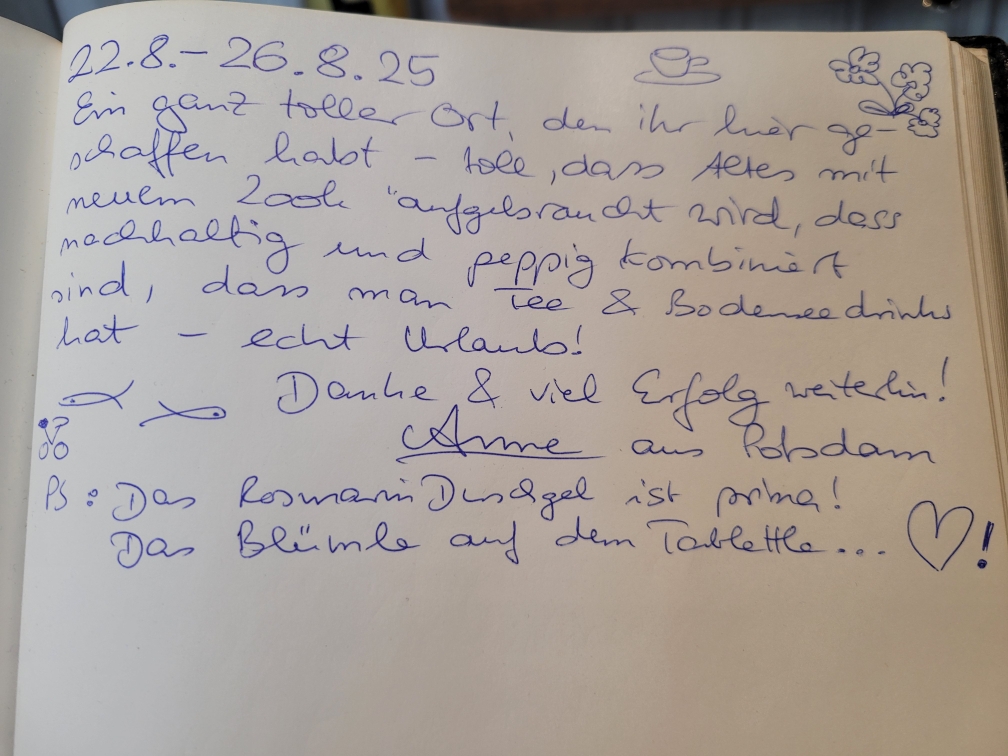 22.8.– 26.8.25
Ein ganz toller Ort, den ihr hier ge-
schaffen habt – toll, dass Altes mit
neuem Look "aufgebraucht wird, dass
nachhaltig und peppig kombiniert
sind, dass man Tee & Bodenseedrinks
hat – echt Urlaub!
Danke & viel Erfolg weiterhin!
Anne aus Potsdam
PS: Das Rosmarin Duschgel ist prima!
Das Blümle auf dem Tablettle... !